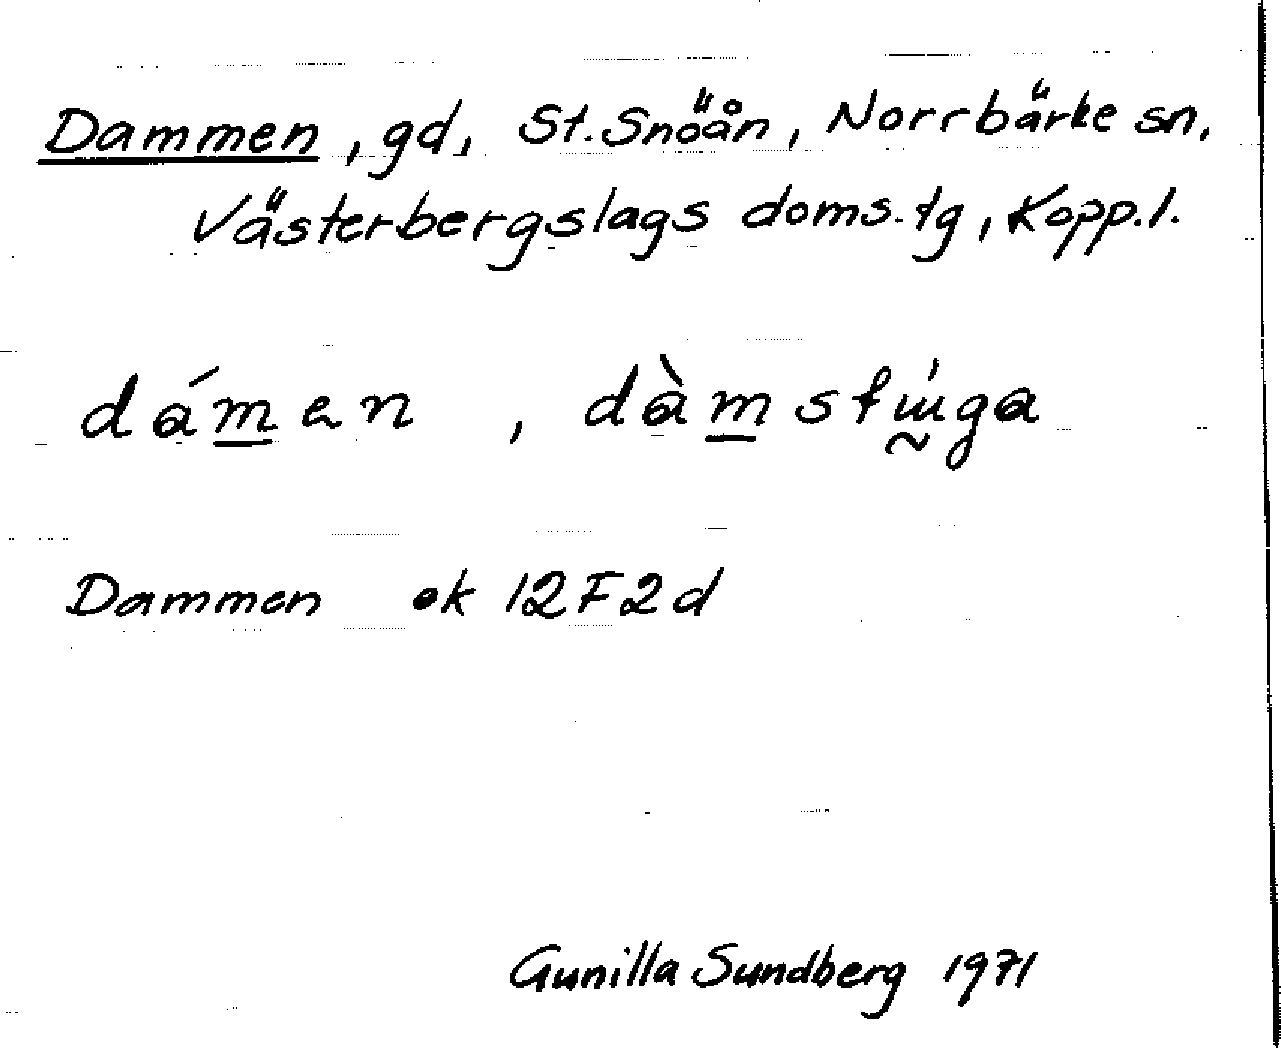 Dammen, gd, St. Snöån, Norrbärke sn,
Västerbergslags doms. tg, Kopp. l.
dámen, dàmstu̇ga
Dammen ek 12F2d
Gunilla Sundberg 1971